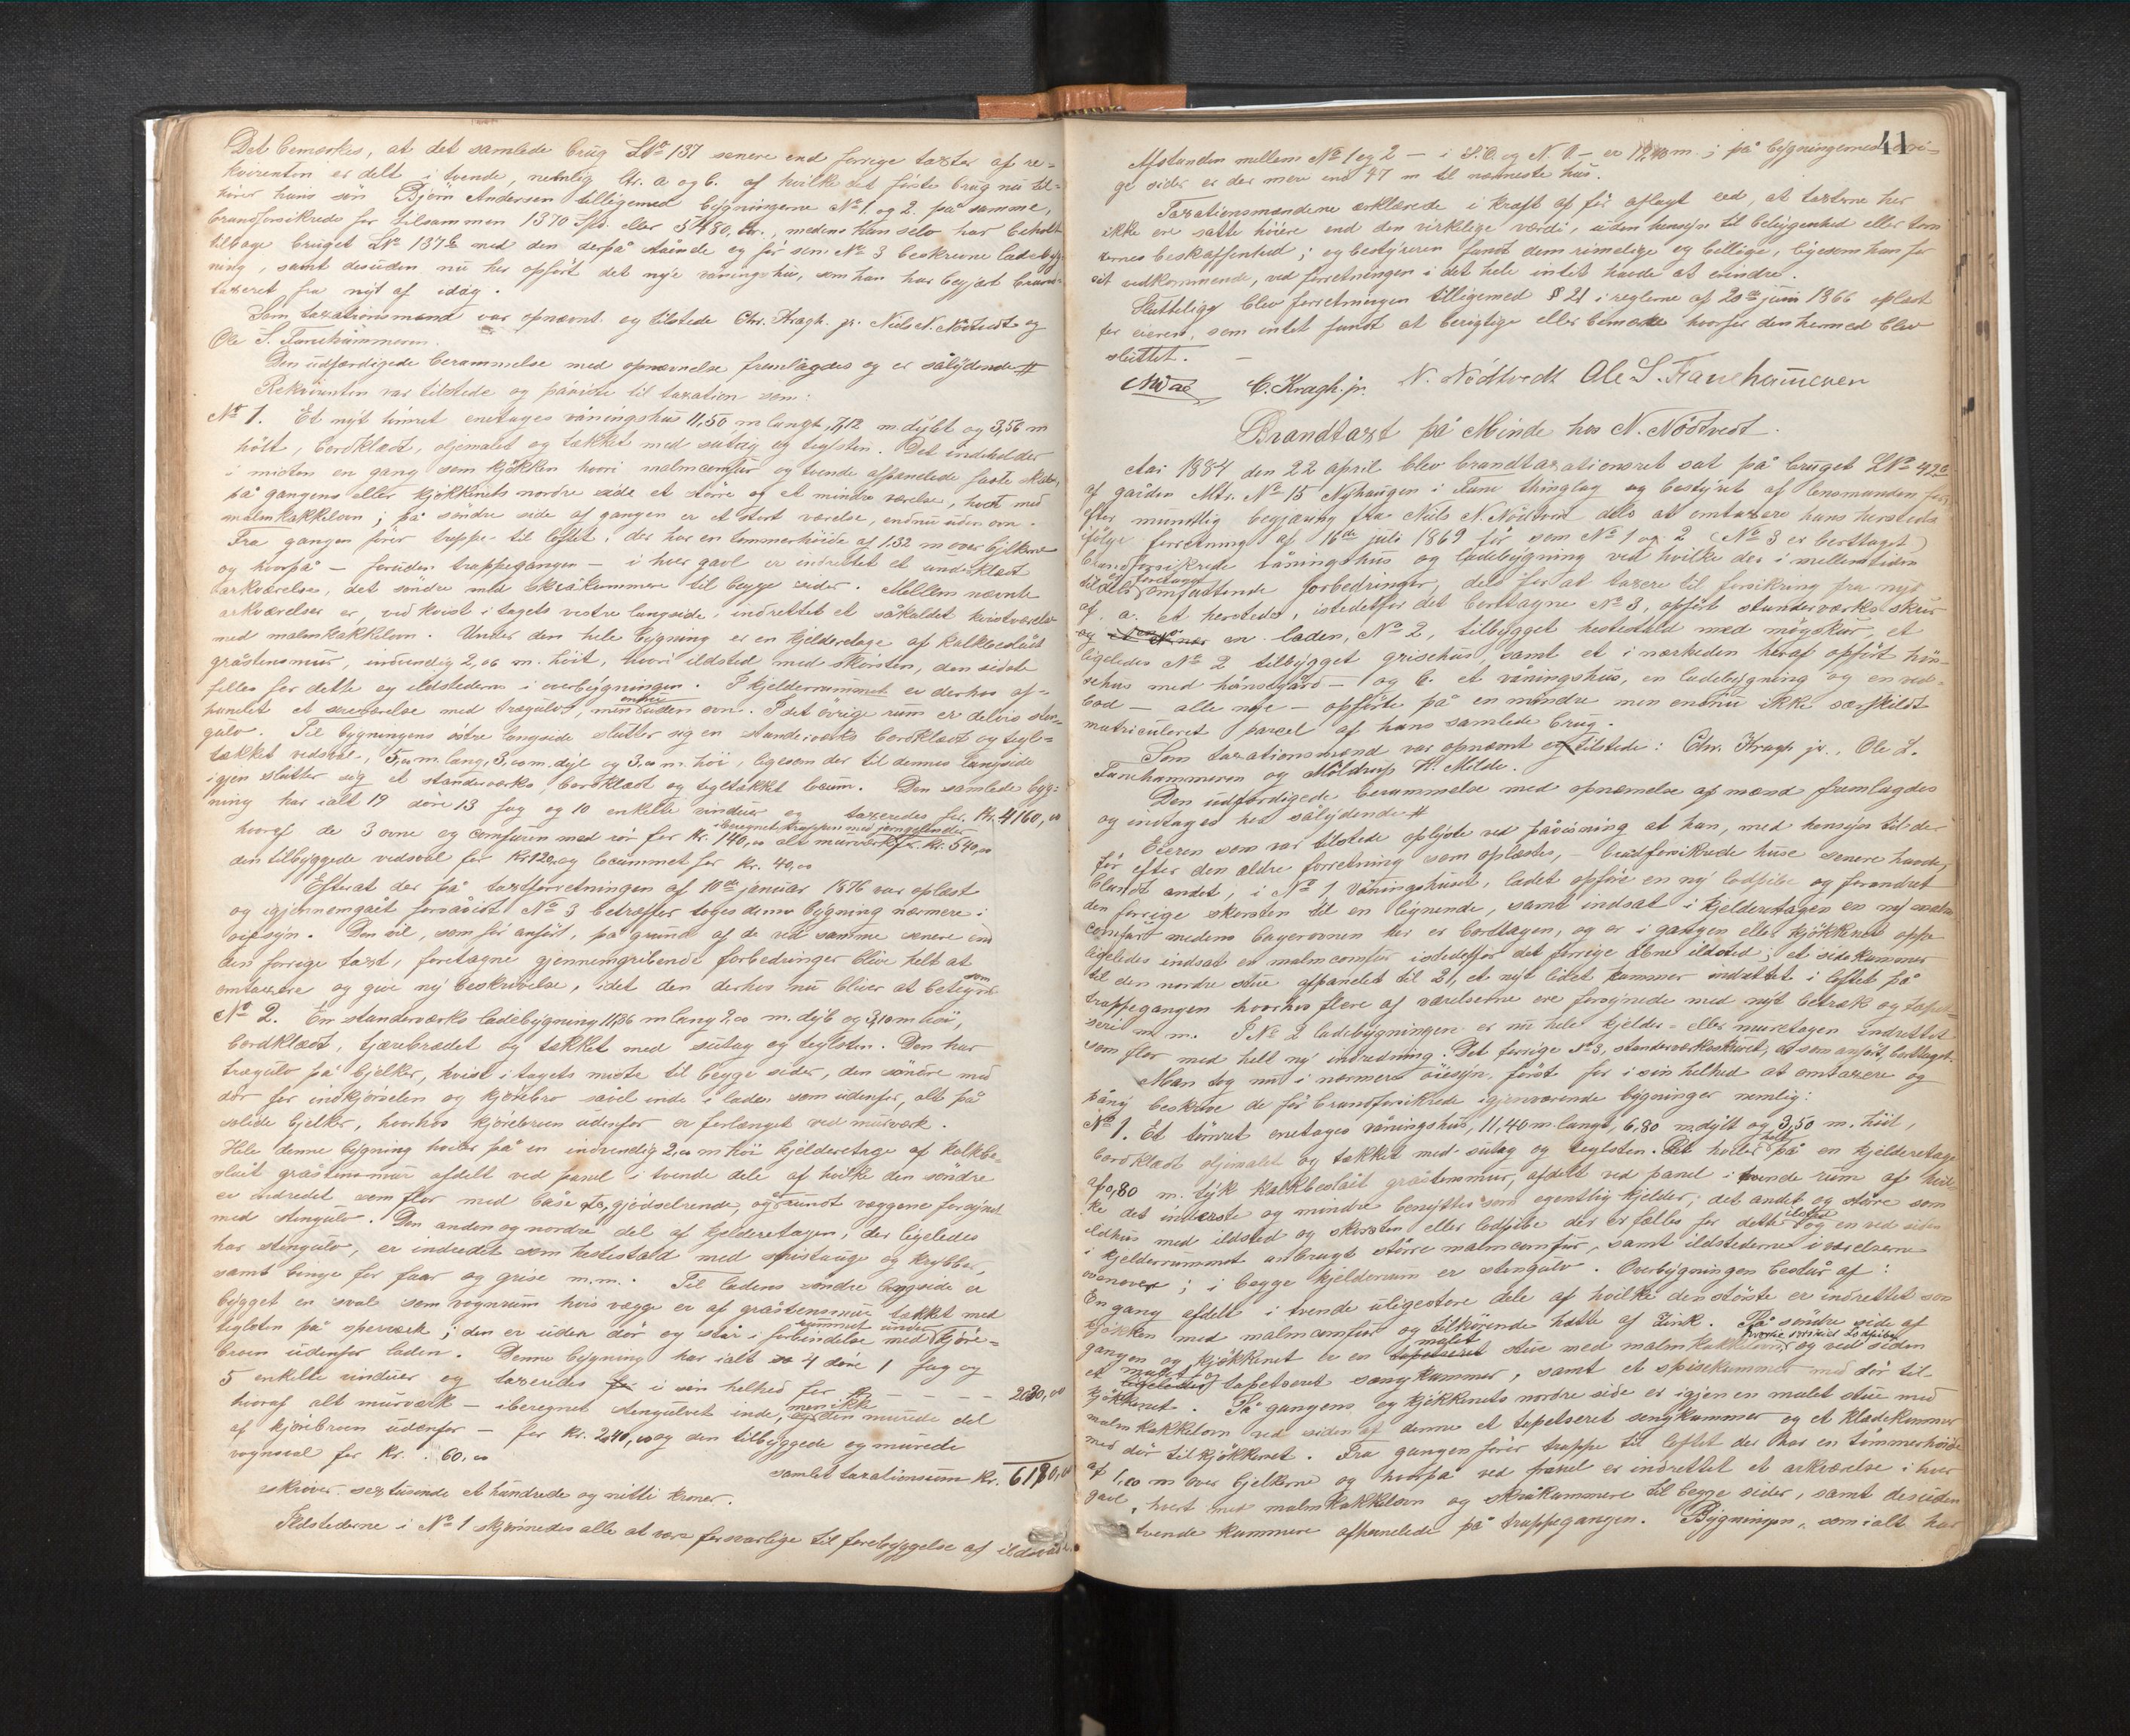 Det bemærkes, at det samlede brug LNo 137 senere end forrige taxter af re-
kvirenten er delt i tvende, nemlig Ltr. a og b. af hvilke det første brug nu til-
hører hans søn Bjørn Andersen tilligemed bygningerne No 1. og 2. på samme,
brandforsikrede for tilsammen 1370 Spd. eller 5480, kr., medens han selv har beholdt
tilbage bruget LNo 137b med den derpå stående og før som No 3 beskrevne ladebyg-
ning, samt desuden nu her opført det nye våningshus, som han har begjært brand-
taxeret fra nyt af idag.
Som taxationsmænd var opnævnt og tilstede Chr. Kragh jr. Niels N. Nödtvedt og
Ole S. Fanehammeren.
Den udfærdigede berammelse med opnævnelse fremlagdes og er sålydende #
Rekvirenten var tilstede og påviste til taxation som:
No 1. Et nyt tømret enetages våningshus 11,50 m langt, 7,12 m dybt og 3,56 m
høit, bordklædt, oljemalet og tækket med sutag og teglsten. Det indeholder
i midten en gang som kjøkken hvori malmcomfur og tvende afpanelede faste skabe,
på gangens eller kjøkkenets nordre side et større og et mindre værelse, hvert med
malmkakkelovn; på søndre side af gangen er et stort værelse, endnu uden ovn.
Fra gangen fører trappe til loftet, der har en tømmerhøide af 1,32 m over bjelkene
og hvorpå - foruden trappegangen - i hver gavl er indrettet et underklædt
arkværelse, det søndre med skråkammere til begge sider. Mellem nævnte
arkværelser er, ved kvist i tagets vestre langside, indrettet et såkaldet kvistværelse
med malmkakkelovn. Under den hele bygning er en kjelderetage af kalkbeslåt
gråstensmur, indvendig 2,06 m. høit, hvori ildsted med skorsten, den sidste
fælles for dette og ildstederne i overbygningen. I kjelderrummet er derhos af-
panelet et værelse med trægulv, men endnu uden ovn. I det øvrige rum er delvis sten-
gulv. Til bygningens østre langside slutter sig en standerværks bordklædt og tegl-
tækket vedsval, 5,00 m. lang, 3,00 m. dyb og 3,00 m. høi, ligesom der til dennes langside
igjen slutter sig et standerværks, bordklædt og tegltækket locum. Den samlede byg-
ning har ialt 19 døre 13 fag og 10 enkelte vinduer og taxeredes for Kr. 4160,00
hvoraf de 3 ovne og comfuren med rør for Kr. 140,00 alt murværk iberegnet trappen med jerngelender for kr. 540,00
den tilbyggede vedsval for Kr 120, og locummet for kr. 40,00
Efterat der på taxtforretningen af 10de januar 1876 var oplæst
og igjennemgået forsåvidt No 3 betræffer toges denne bygning nærmere i
øiesyn. Den vil, som før anført, på grund af de ved samme senere end
den forrige taxt, foretagne gjennemgribende forbedringer blive helt at
omtaxere og give ny beskrivelse, idet den derhos nu bliver at betegne som
No 2. En standerværks ladebygning 11,86 m lang 9,00 m. dyb og 3,10 m høi,
bordklædt, tjærebrædet og tækket med sutag og teglsten. Den har
trægulv på bjelker, kvist i tagets midte til begge sider, den søndre med
dør for indkjørselen og kjørebro såvel inde i laden som udenfor, alt på
solide bjelker, hvorhos kjørebroen udenfor er forlænget ved murværk.
Hele denne bygning hviler på en indvendig 2,00 m høi kjelderetage af kalkbe-
slåt gråstensmur afdelt ved panel i tvende dele af hvilke den søndre
er indredet som flor med båse etc, gjødselrende, og rundt væggene forsynet
med stengulv. Den anden og nordre del af kjelderetagen, der ligeledes
har stengulv, er indredet som hestestald med spiltauge og krybber,
samt binge for faar og grise m.m. Til ladens søndre langside er
bygget en sval som vognrum hvis vægge er af gråstensmur tækket med
teglsten på sperværk; den er uden dør og står i forbindelse med rummet under kjøre-
broen udenfor laden. Denne bygning har ialt 4 døre 1 fag og
5 enkelte vinduer og taxeredes i sin helhed for kr. - - - - 2030,00
hvoraf alt murværk - iberegnet stengulvet inde, men ikke den murede del
af kjørebroen udenfor - for Kr. 240,00 og den tilbyggede og murede
vognsval for Kr. 60,00
samlet taxationssum Kr. 6190,00
skriver sextusende et hundrede og nitti kroner.
Ildstederne i No 1 skjønnedes alle at være forsvarlige til forebyggelse af ildsvåde.
41
Afstanden mellem No 1 og 2 - i S.O. og N.V. - er 12,40 m; på bygningernes øvri-
ge sider er der mere end 47 m til nærmeste hus.
Taxationsmændene erklærede i kraft af før aflagt eed, at taxterne her
ikke ere satte høiere end den virkelige værdi, uden hensyn til beliggenhed eller tom-
ternes beskaffenhed; og bestyreren fandt dem rimelige og billige, ligesom han for
sit vedkommende, ved forretningen i det hele intet havde at erindre.
Slutteligt blev forretningen tilligemed § 21 i reglerne af 20de juni 1866 oplæst
for eieren, som intet fandt at berigtige eller bemærke hvorfor den hermed blev
sluttet. -
C. Kragh. jr. N. Nödtvedt Ole S. Fanehammeren
Brandtaxt på Minde hos N. Nödtvedt.
Aar 1884 den 22 april blev brandtaxationsret sat på bruget LNo 42c
af gården Mtr. No 15 Nyhaugen i Fane thinglag og bestyret af lensmanden
efter mundtlig begjæring fra Niels N. Nödtvedt dels at omtaxere hans hersteds
ifølge forretning af 16de juli 1869 før som No 1 og 2 (No 3 er borttaget)
brandforsikrede våningshus og ladebygning ved hvilke der i mellemtiden
er foretaget tildels omfattende forbedringer, dels for at taxere til forsikring fra nyt
af. a. et hersteds, istedetfor det borttagne No 3, opført standerværks skur
og en laden, No 2, tilbygget hestestald med møgskur, et
ligeledes No 2 tilbygget grisehus, samt et i nærheden heraf opført høn-
sehus med hønsegård - og b. et våningshus, en ladebygning og en ved-
bod - alle nye - opførte på en mindre men endnu ikke særskildt
matriculeret parcel af hans samlede brug.
Som taxationsmænd var opnævnt og tilstede: Chr. Kragh jr., Ole S.
Fanehammeren og Møldrup H. Milde.
Den udfærdigede berammelse med opnævnelse af mænd fremlagdes
og indtages her sålydende #
Eieren som var tilstede oplyste ved påvisning at han, med hensyn til de
før efter den ældre forretning som oplæstes, - brandforsikrede huse senere havde,
blandt andet, i No 1 Våningshuset, ladet opføre en ny lodpibe og forandret
den forrige skorsten til en lignende, samt indsat i kjelderetagen en ny malm
comfur medens bagerovnen her er borttagen, og er i gangen eller kjøkkenet oppe
ligeledes indsat en malmcomfur istedetfor det forrige åbne ildsted; et sidekammer
til den nordre stue afpanelet til 2, et nyt lidet kammer indrettet i loftet på
trappegangen hvorhos flere af værelserne ere forsynede med nyt betræk og tapet-
seri m.m. I No 2 ladebygningen er nu hele kjelder- eller muretagen indrettet
som flor med helt ny indredning. Det forrige No 3, standerværksskuret, er som anført, borttaget.
Man tog nu i nærmere øiesyn, først for i sin helhed at omtaxere og
påny beskrive de før brandforsikrede igjenværende bygninger nemlig:
No 1. Et tømret enetages våningshus, 11,40 m. langt, 6,80 m dybt og 3,50 m. høit,
bordklædt oljemalet og tækket med sutag og teglsten. Det hviler helt på en kjelderetage
af 0,80 m. tyk kalkbeslåt gråstensmur, afdelt ved panel i tvende rum af hvil-
ke det inderste og mindre benyttes som egentlig kjelder; det andet og større som
ildhus med ildsted og skorsten eller lodpibe der er fælles for dette ildsted og en ved siden
i kjelderrummet anbragt større malmcomfur, samt ildstederne i værelserne
ovenover; i begge kjelderrum er stengulv. Overbygningen består af:
En gang afdelt i tvende uligestore dele af hvilke den største er indrettet som
kjøkken med malmcomfur og tilhørende hætte af Zink. På søndre side af
gangen og kjøkkenet er en malet stue med malmkakkelovn, og ved siden
et malet og tapetseret sengkammer, samt et spisekammer med dør til
kjøkkenet. På gangens og kjøkkenets nordre side er igjen en malet stue med
malmkakkelovn ved siden af denne et tapetseret sengkammer og et klædekammer
med dør til kjøkkenet. Fra gangen fører trappe til loftet der har en tømmerhøide
af 1,00 m over bjelkerne og hvorpå ved panel er indrettet et arkværelse i hver
gavl, hvert med malmkakkelovn og skråkammere til begge sider, samt desuden
tvende kammere afpanelede på trappegangen. Bygningen, som ialt har